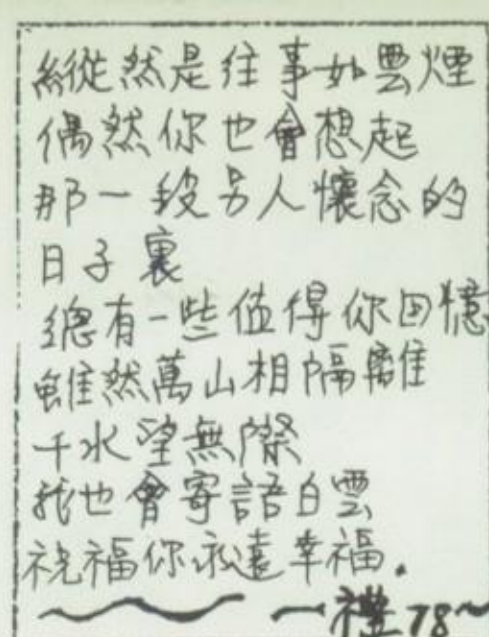 縱然是往事如雲煙
偶然你也會想起
那一段另人懷念的
日子裏
總有一些值得你回憶
雖然萬山相隔離
千水望無際
我也會寄語白雲
祝福你永遠幸福.
禮 78